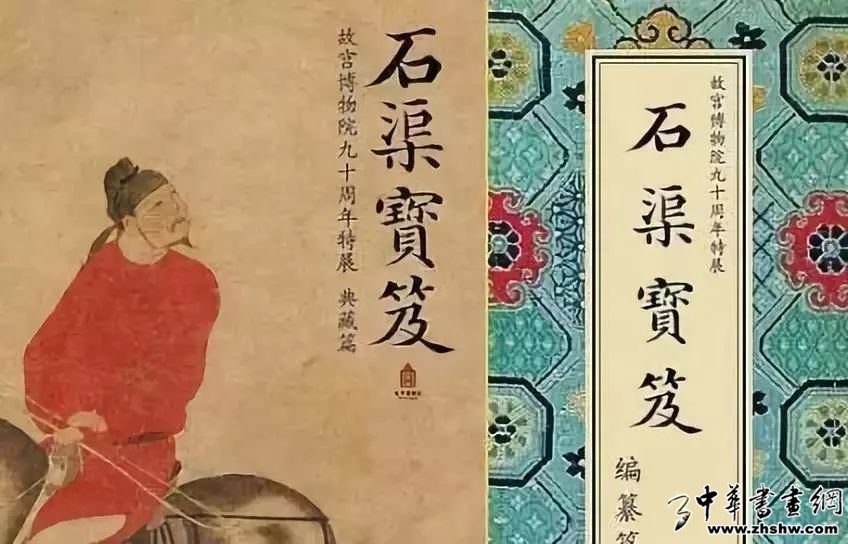 石渠寶笈
故宫博物院九十周年特展 典藏篇
故宫博物院九十周年特展
石渠寶笈
编纂
中華書畫網
www.zhshw.com